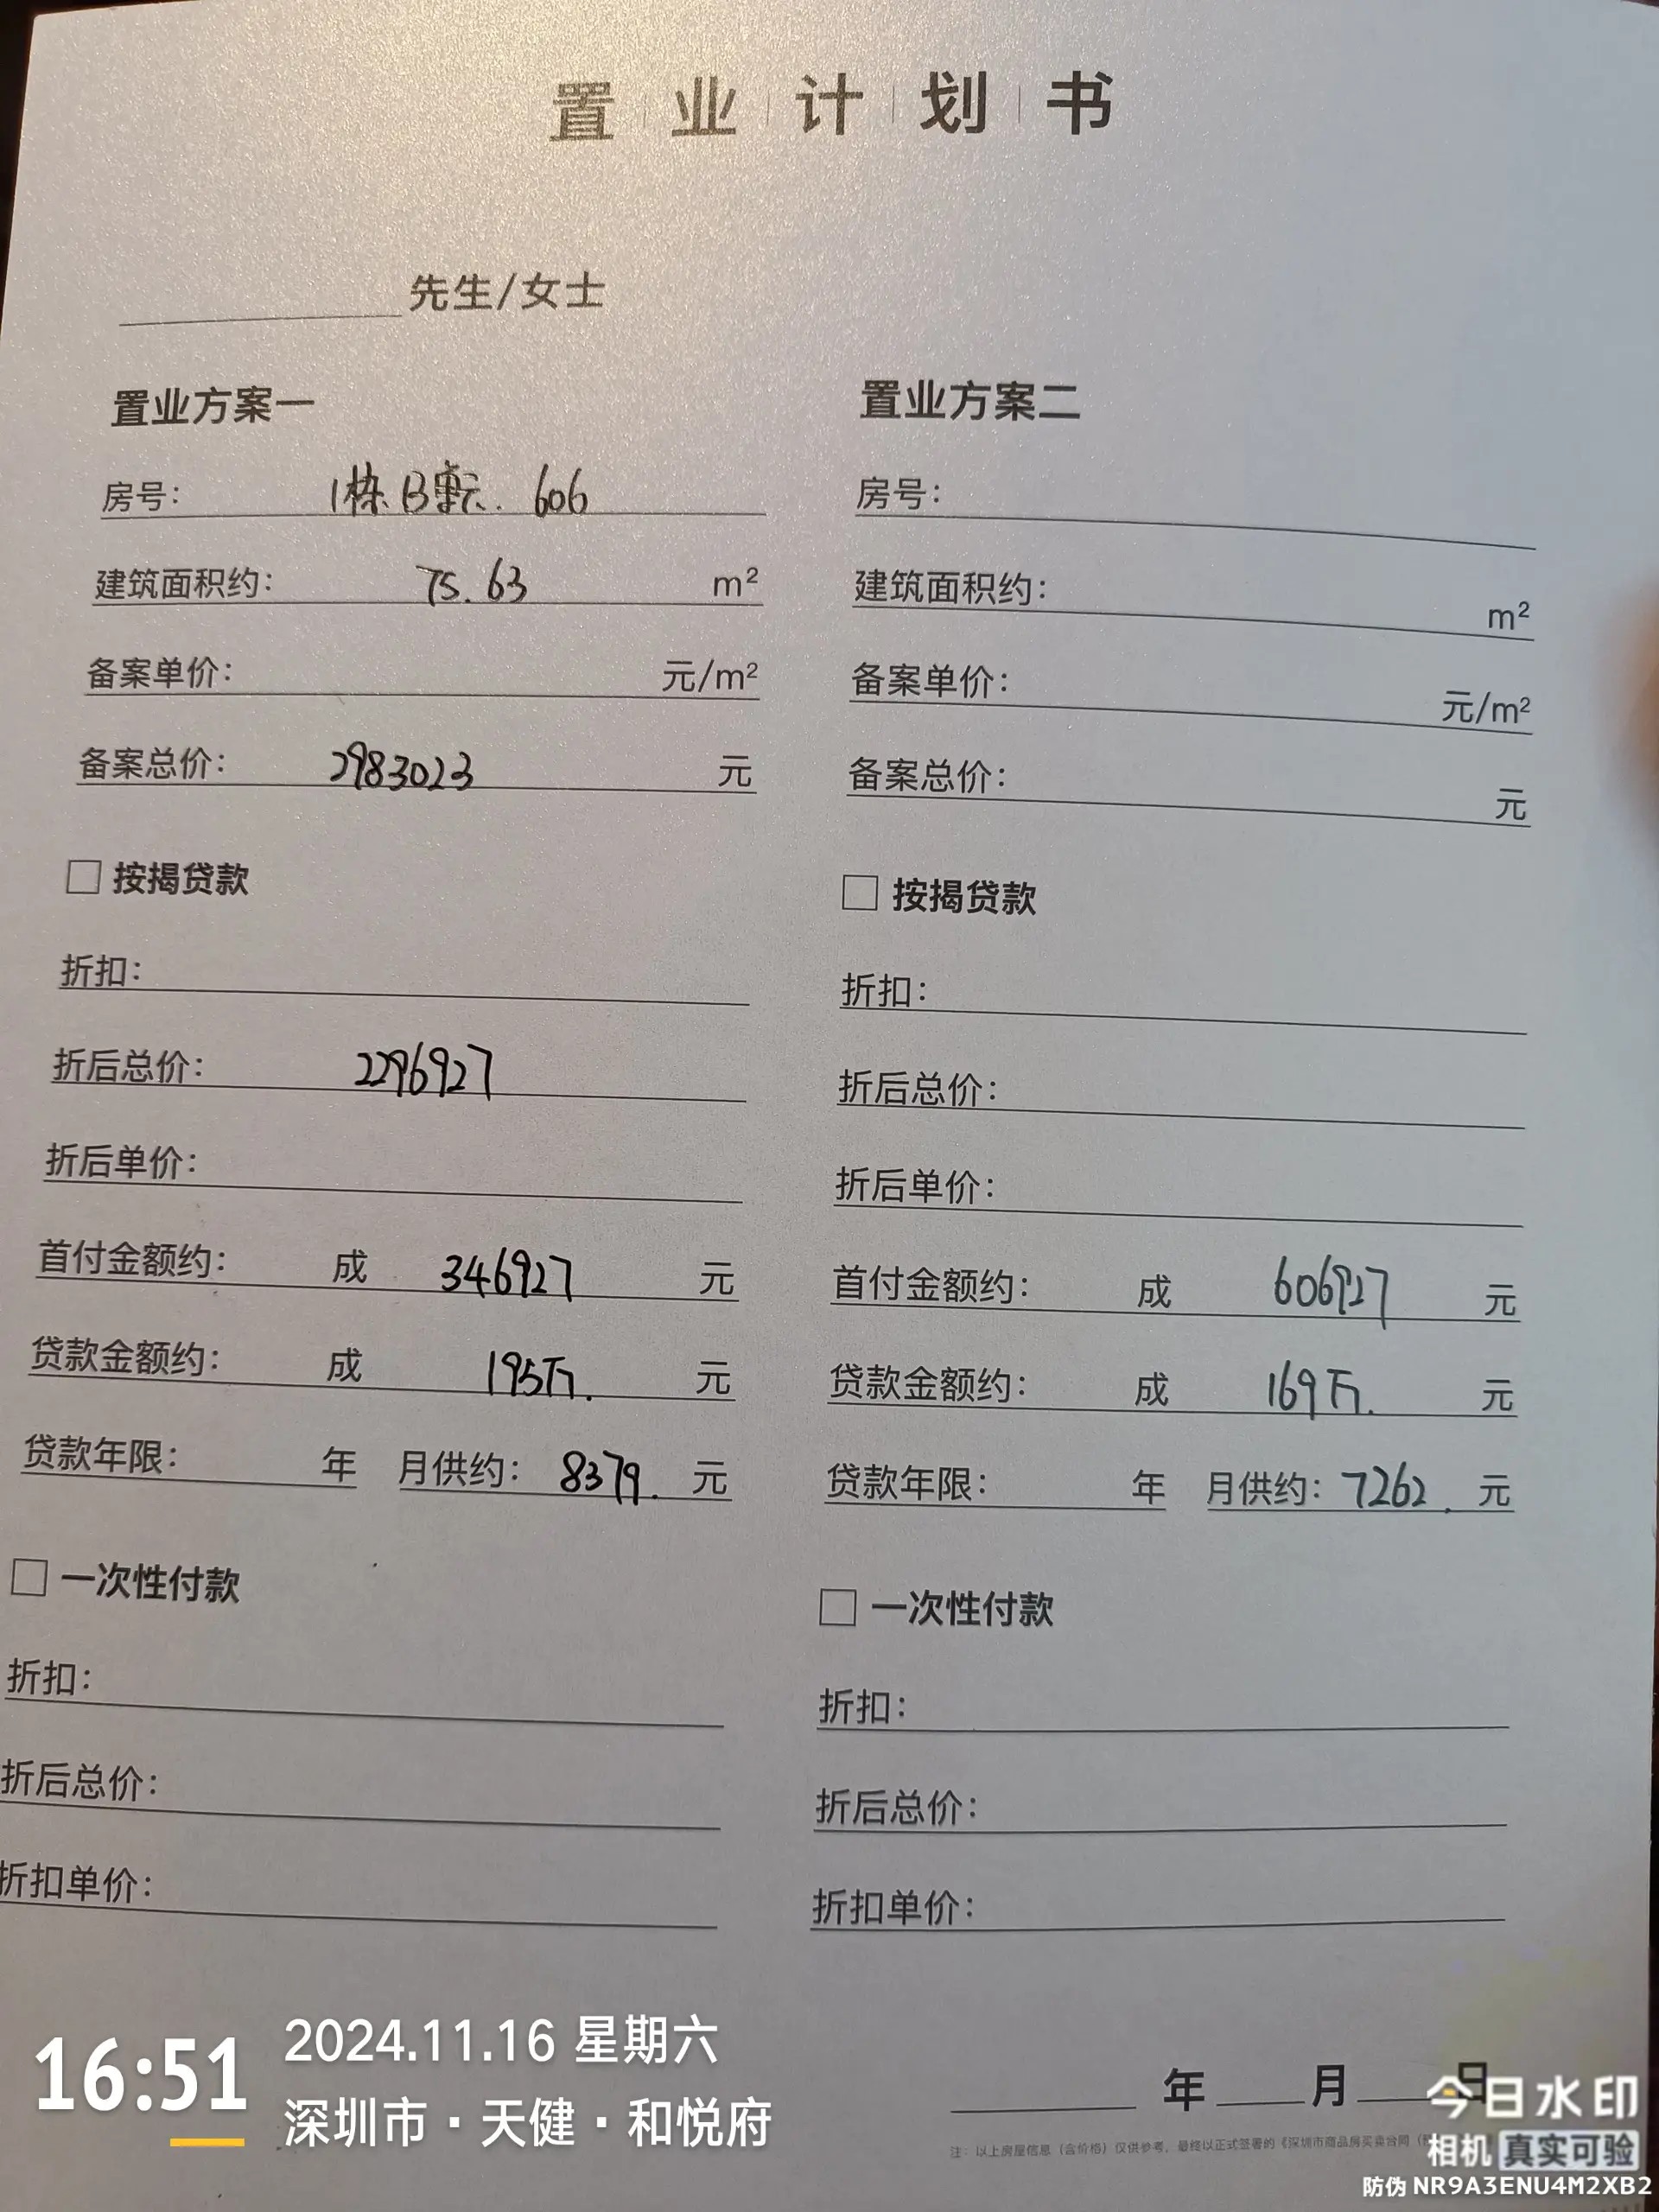 置业计划书
先生/女士
置业方案一
房号: 1栋B 606
建筑面积约: 75.63 m²
备案单价: 元/m²
备案总价: 2983023 元
□ 按揭贷款
折扣:
折后总价: 2296927
折后单价:
首付金额约: 成 346927 元
贷款金额约: 成 195万. 元
贷款年限: 年 月供约: 8379. 元
□ 一次性付款
折扣:
折后总价:
折扣单价:
置业方案二
房号:
建筑面积约: m²
备案单价: 元/m²
备案总价: 元
□ 按揭贷款
折扣:
折后总价:
折后单价:
首付金额约: 成 606927 元
贷款金额约: 成 169万. 元
贷款年限: 年 月供约: 7262. 元
□ 一次性付款
折扣:
折后总价:
折扣单价:
年 月 日
注: 以上房屋信息（含价格）仅供参考，最终以正式签署的《深圳市商品房买卖合同（
16:51
2024.11.16 星期六
深圳市·天健·和悦府
今日水印
相机 真实可验
防伪 NR9A3ENU4M2XB2